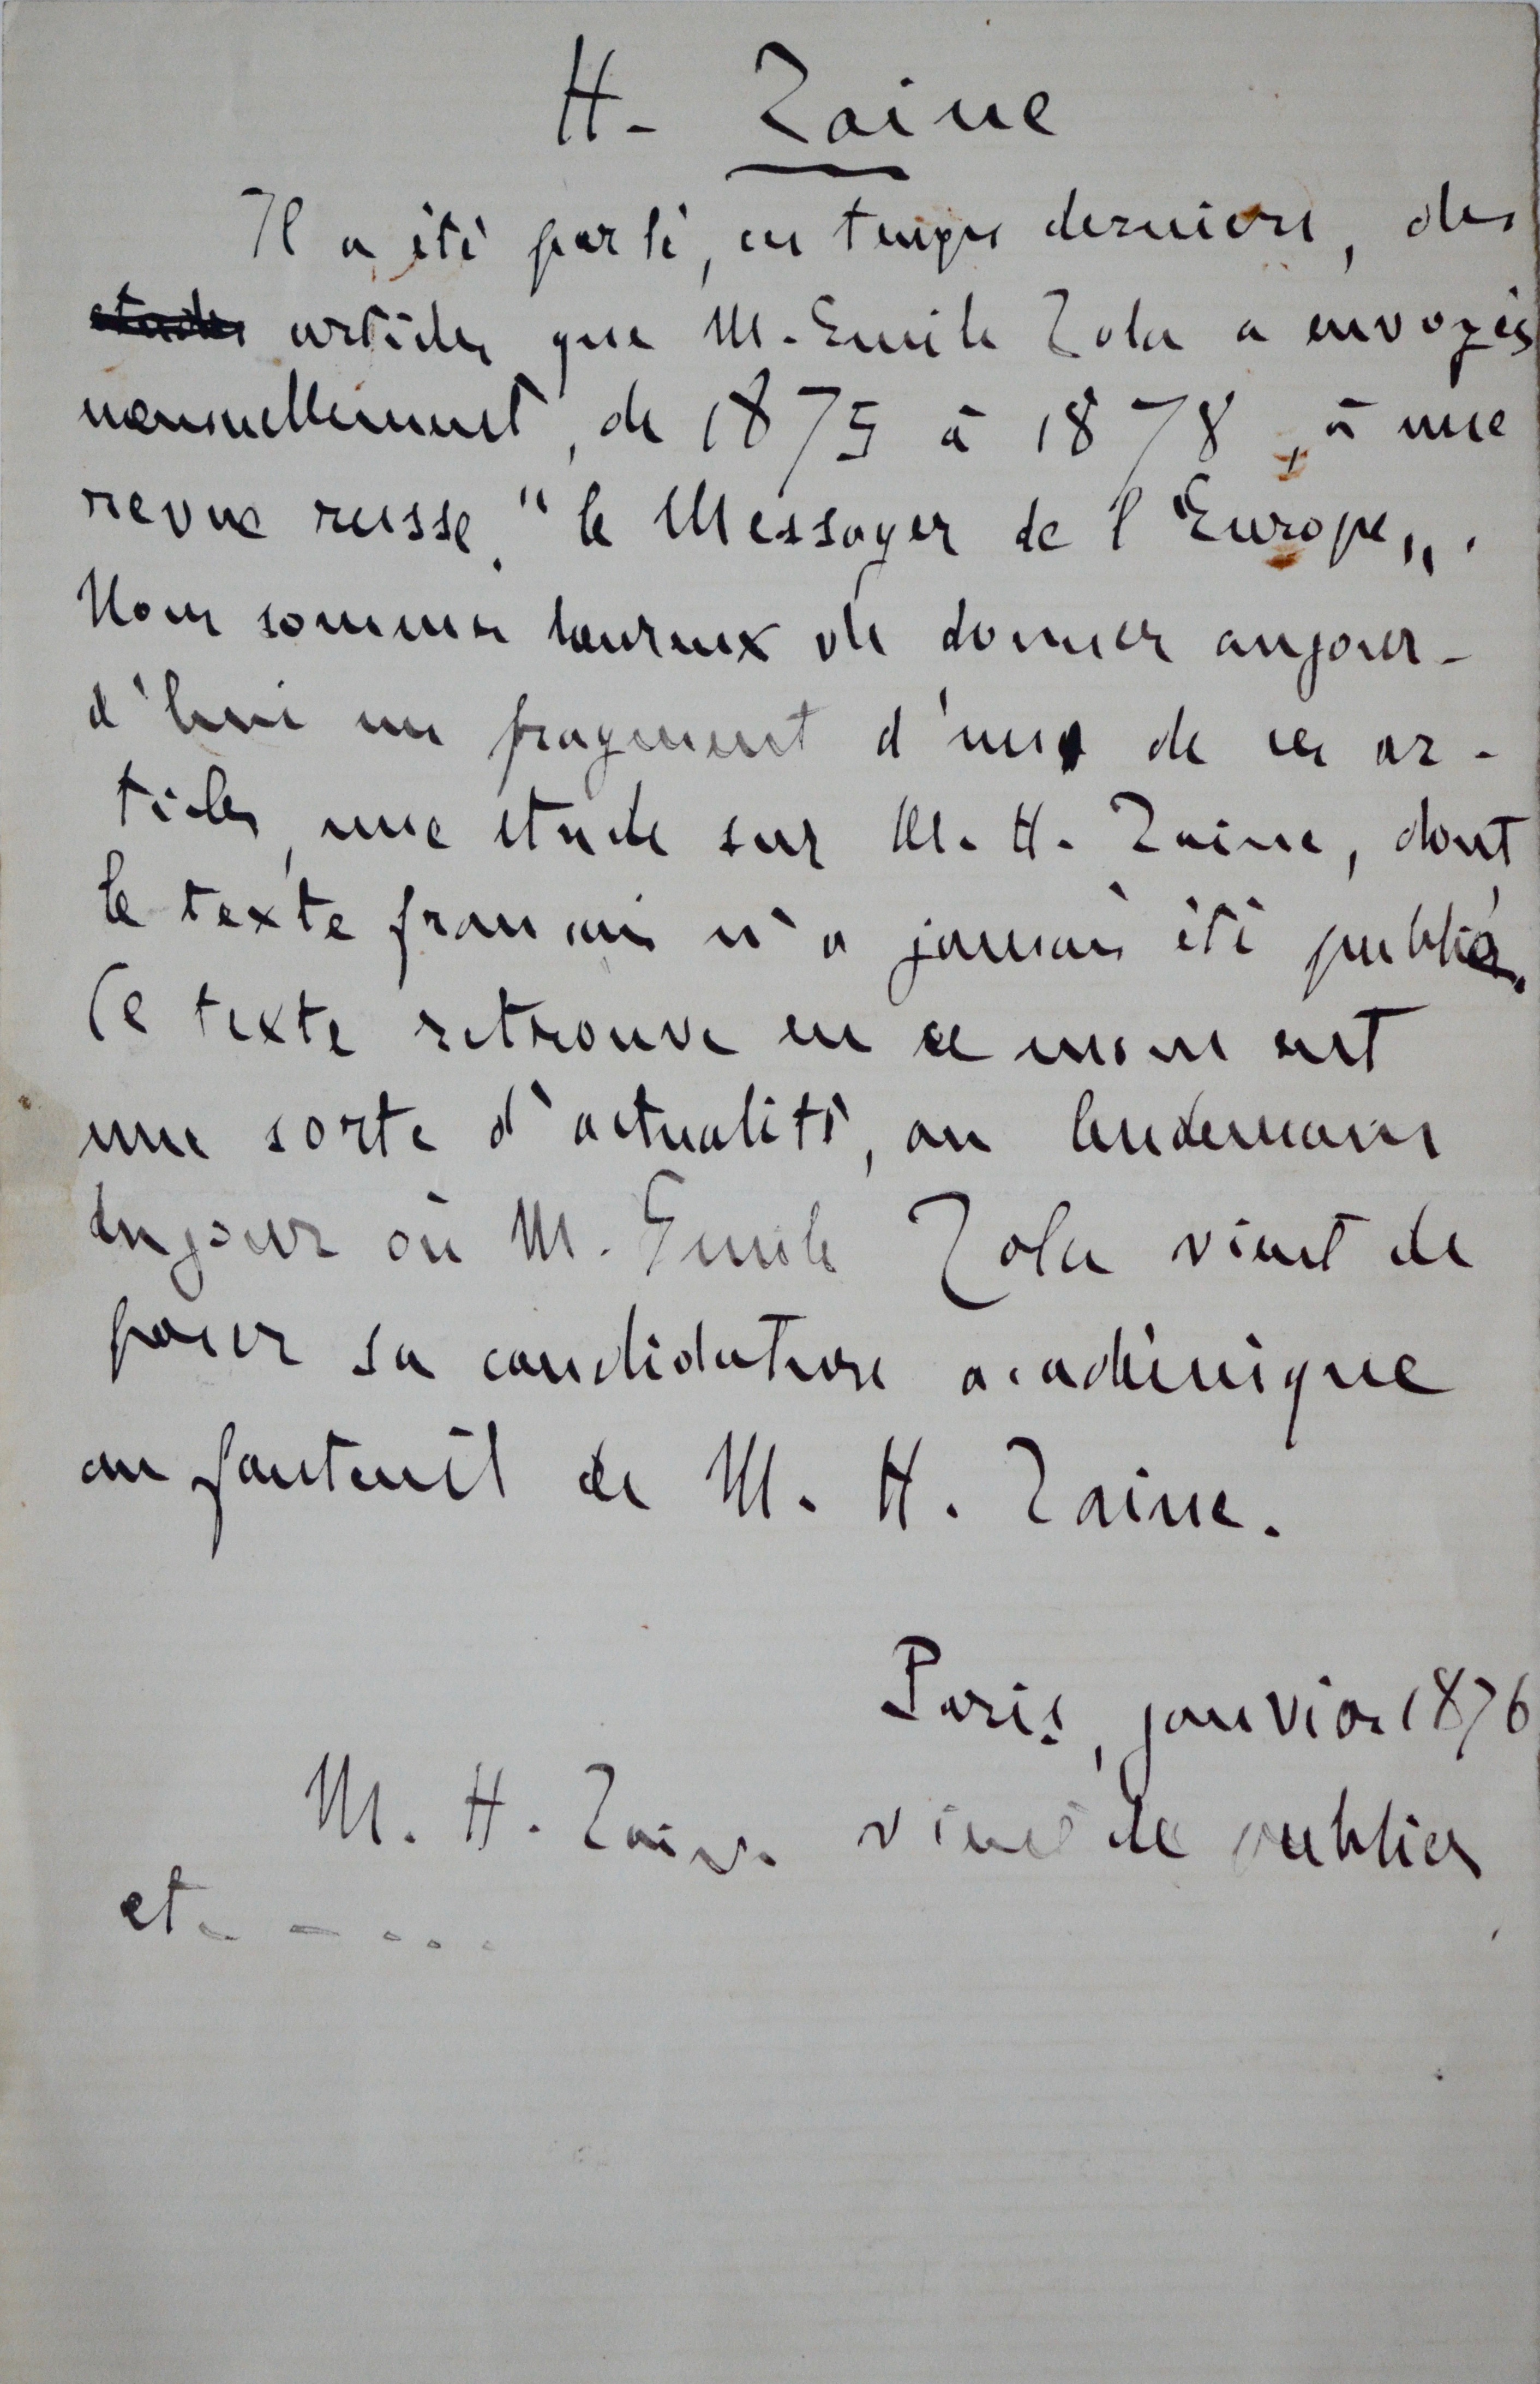 H. Taine
Il a été parlé, ces temps derniers, des
articles que M. Emile Zola a envoyés
mensuellement, de 1875 à 1878, à une
revue russe, "le Messager de l'Europe„.
Nous sommes heureux de donner aujour-
d'hui un fragment d'un de ces ar-
ticles, une étude sur M. H. Taine, dont
le texte français n'a jamais été publié.
Ce texte retrouve en ce moment
une sorte d'actualité, au lendemain
du jour où M. Emile Zola vient de
poser sa candidature académique
au fauteuil de M. H. Taine.
Paris, janvier 1876
M. H. Taine vient de publier
et. - ...